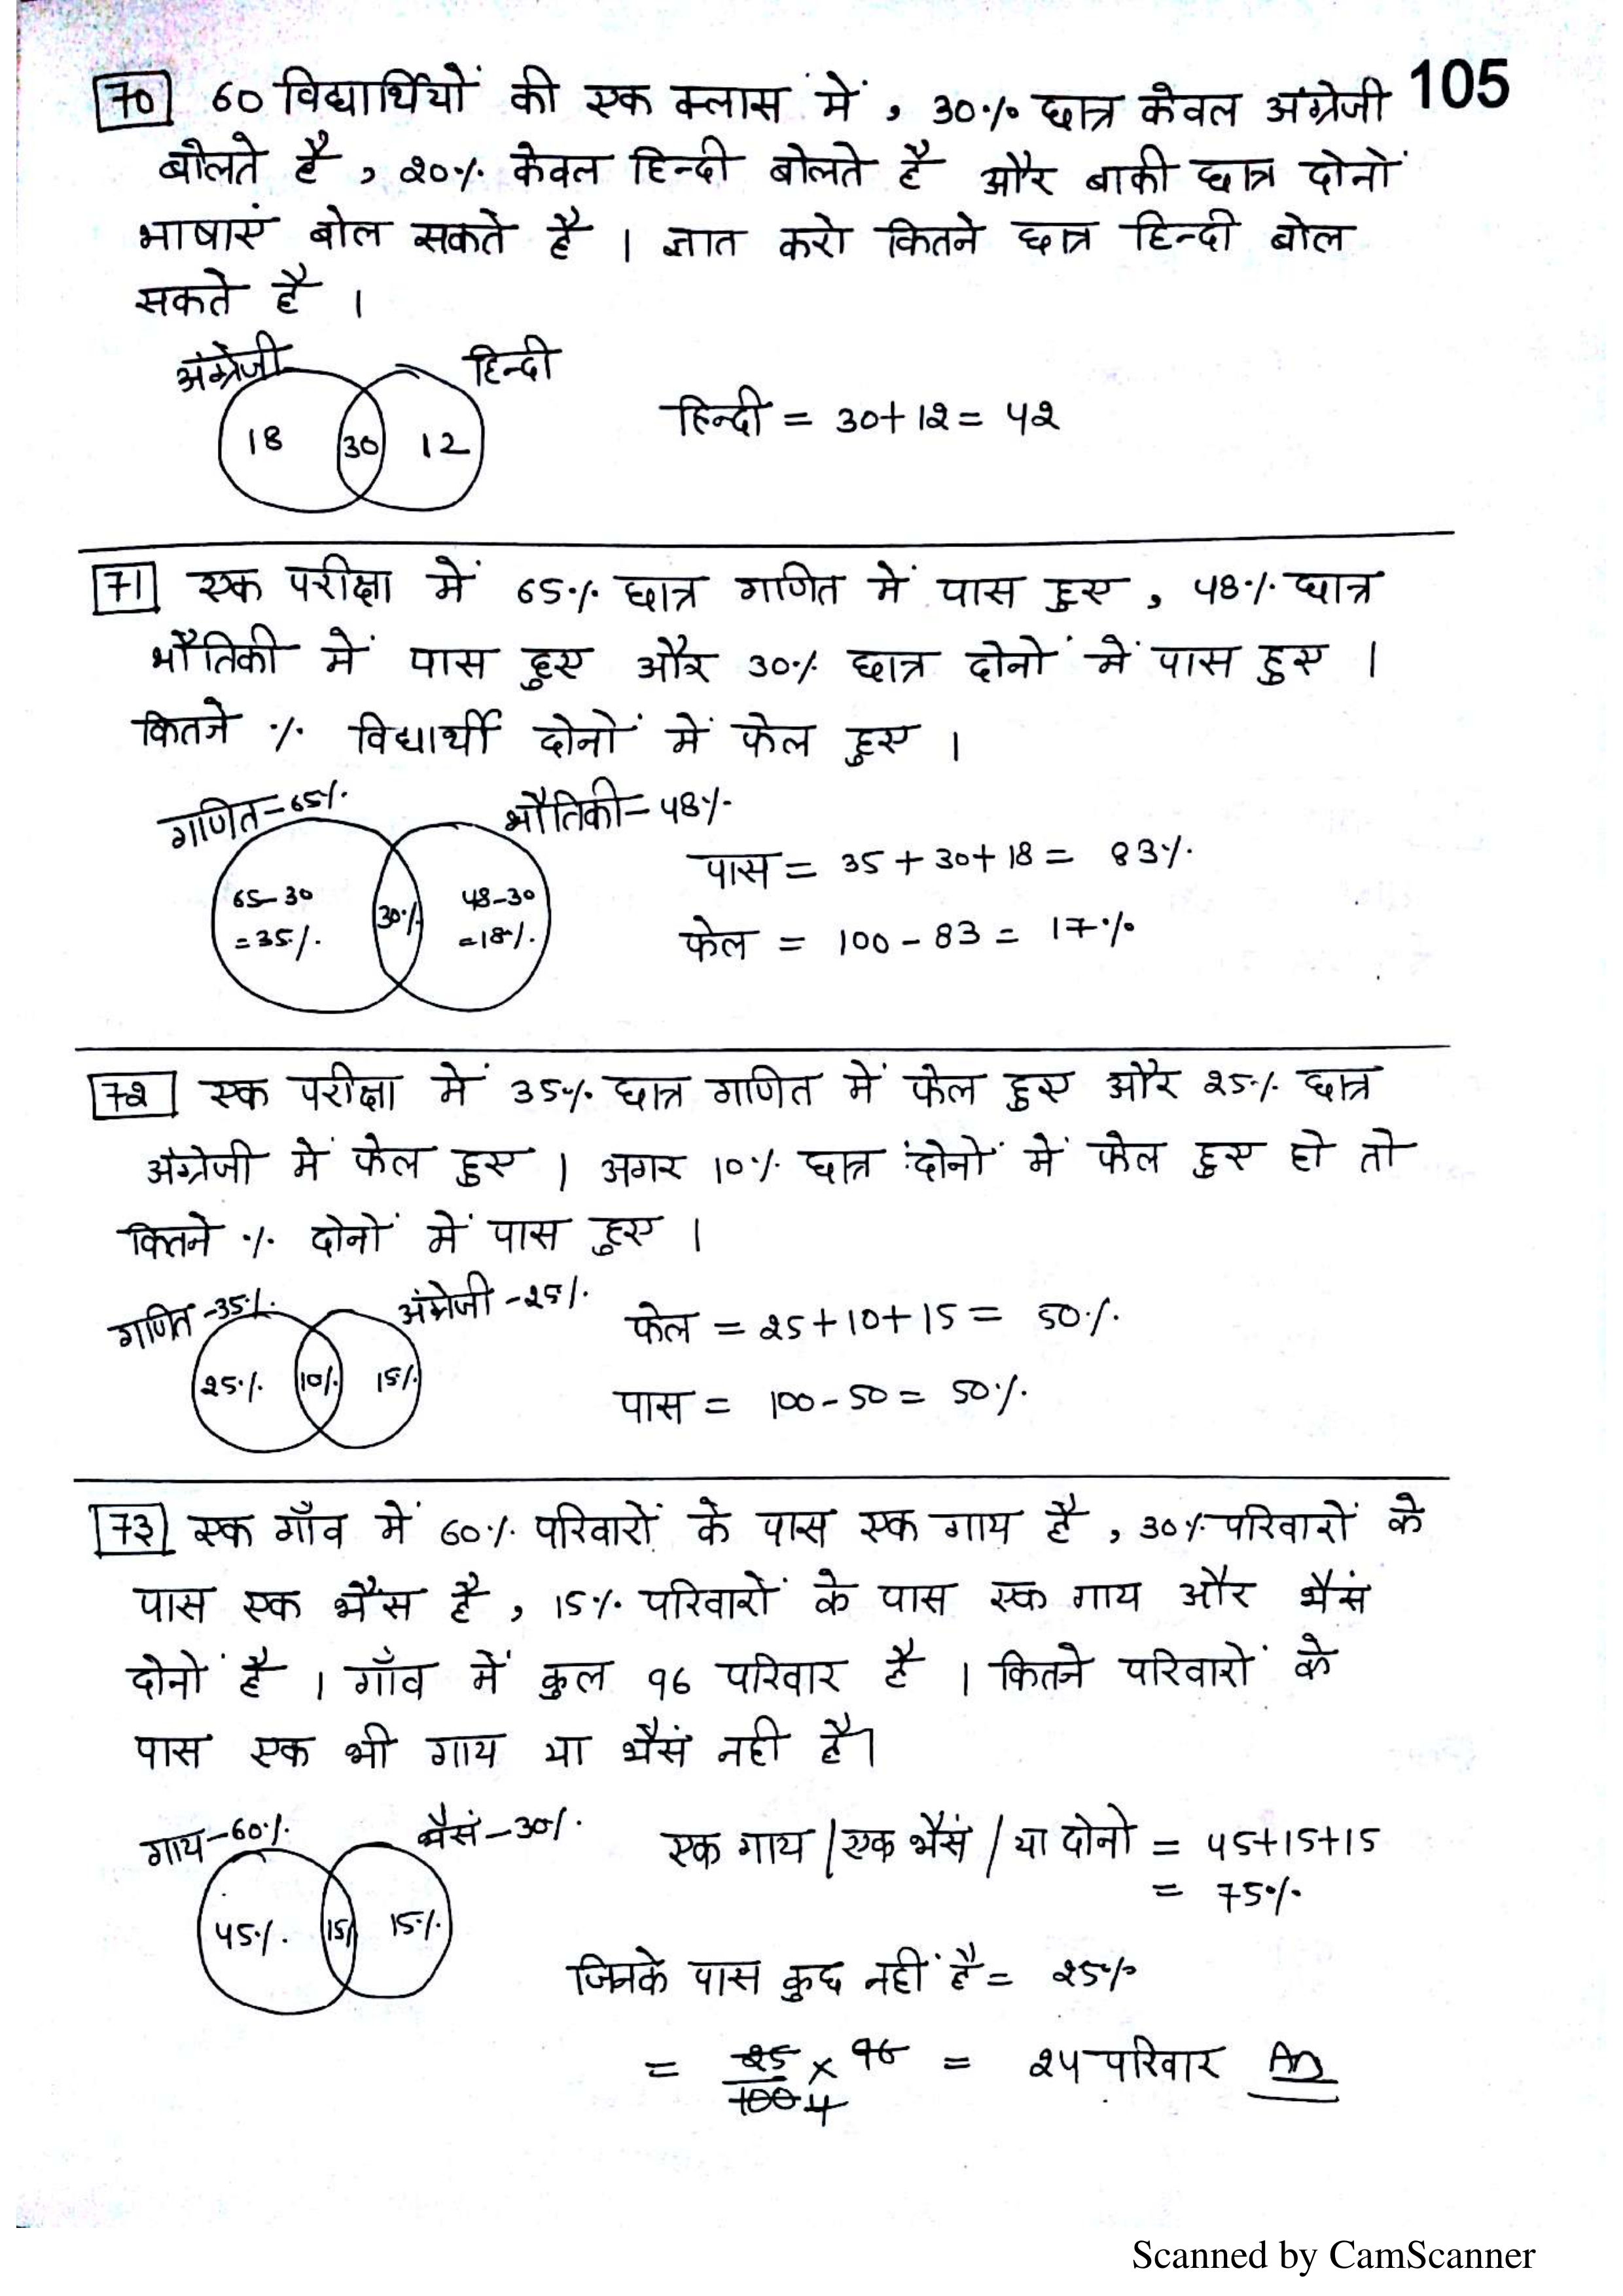 105
70 60 विद्यार्थियों की एक क्लास में , 30% छात्र केवल अंग्रेजी
बोलते है , 20% केवल हिन्दी बोलते है और बाकी छात्र दोनों
भाषाएं बोल सकते है । ज्ञात करो कितने छात्र हिन्दी बोल
सकते है ।
अंग्रेजी हिन्दी
18 30 12
हिन्दी = 30+12 = 42
71 एक परीक्षा में 65% छात्र गणित में पास हुए , 48% छात्र
भौतिकी में पास हुए और 30% छात्र दोनों में पास हुए ।
कितने % विद्यार्थी दोनों में फेल हुए ।
गणित=65% भौतिकी=48%
पास = 35 + 30 + 18 = 83%
65-30 30% 48-30
=35% =18%
फेल = 100 - 83 = 17%
72 एक परीक्षा में 35% छात्र गणित में फेल हुए और 25% छात्र
अंग्रेजी में फेल हुए । अगर 10% छात्र दोनों में फेल हुए हो तो
कितने % दोनों में पास हुए ।
गणित -35% अंग्रेजी -25%
फेल = 25+10+15 = 50%
25% 10% 15%
पास = 100-50 = 50%
73 एक गाँव में 60% परिवारों के पास एक गाय है , 30% परिवारों के
पास एक भैंस है , 15% परिवारों के पास एक गाय और भैसं
दोनों है । गाँव में कुल 96 परिवार है । कितने परिवारों के
पास एक भी गाय या भैसं नही है।
गाय-60% भैसं-30%
एक गाय / एक भैसं / या दोनो = 45+15+15
= 75%
45% 15% 15%
जिनके पास कुछ नहीं है = 25%
= 25/100 4 × 96 = 24 परिवार An
Scanned by CamScanner